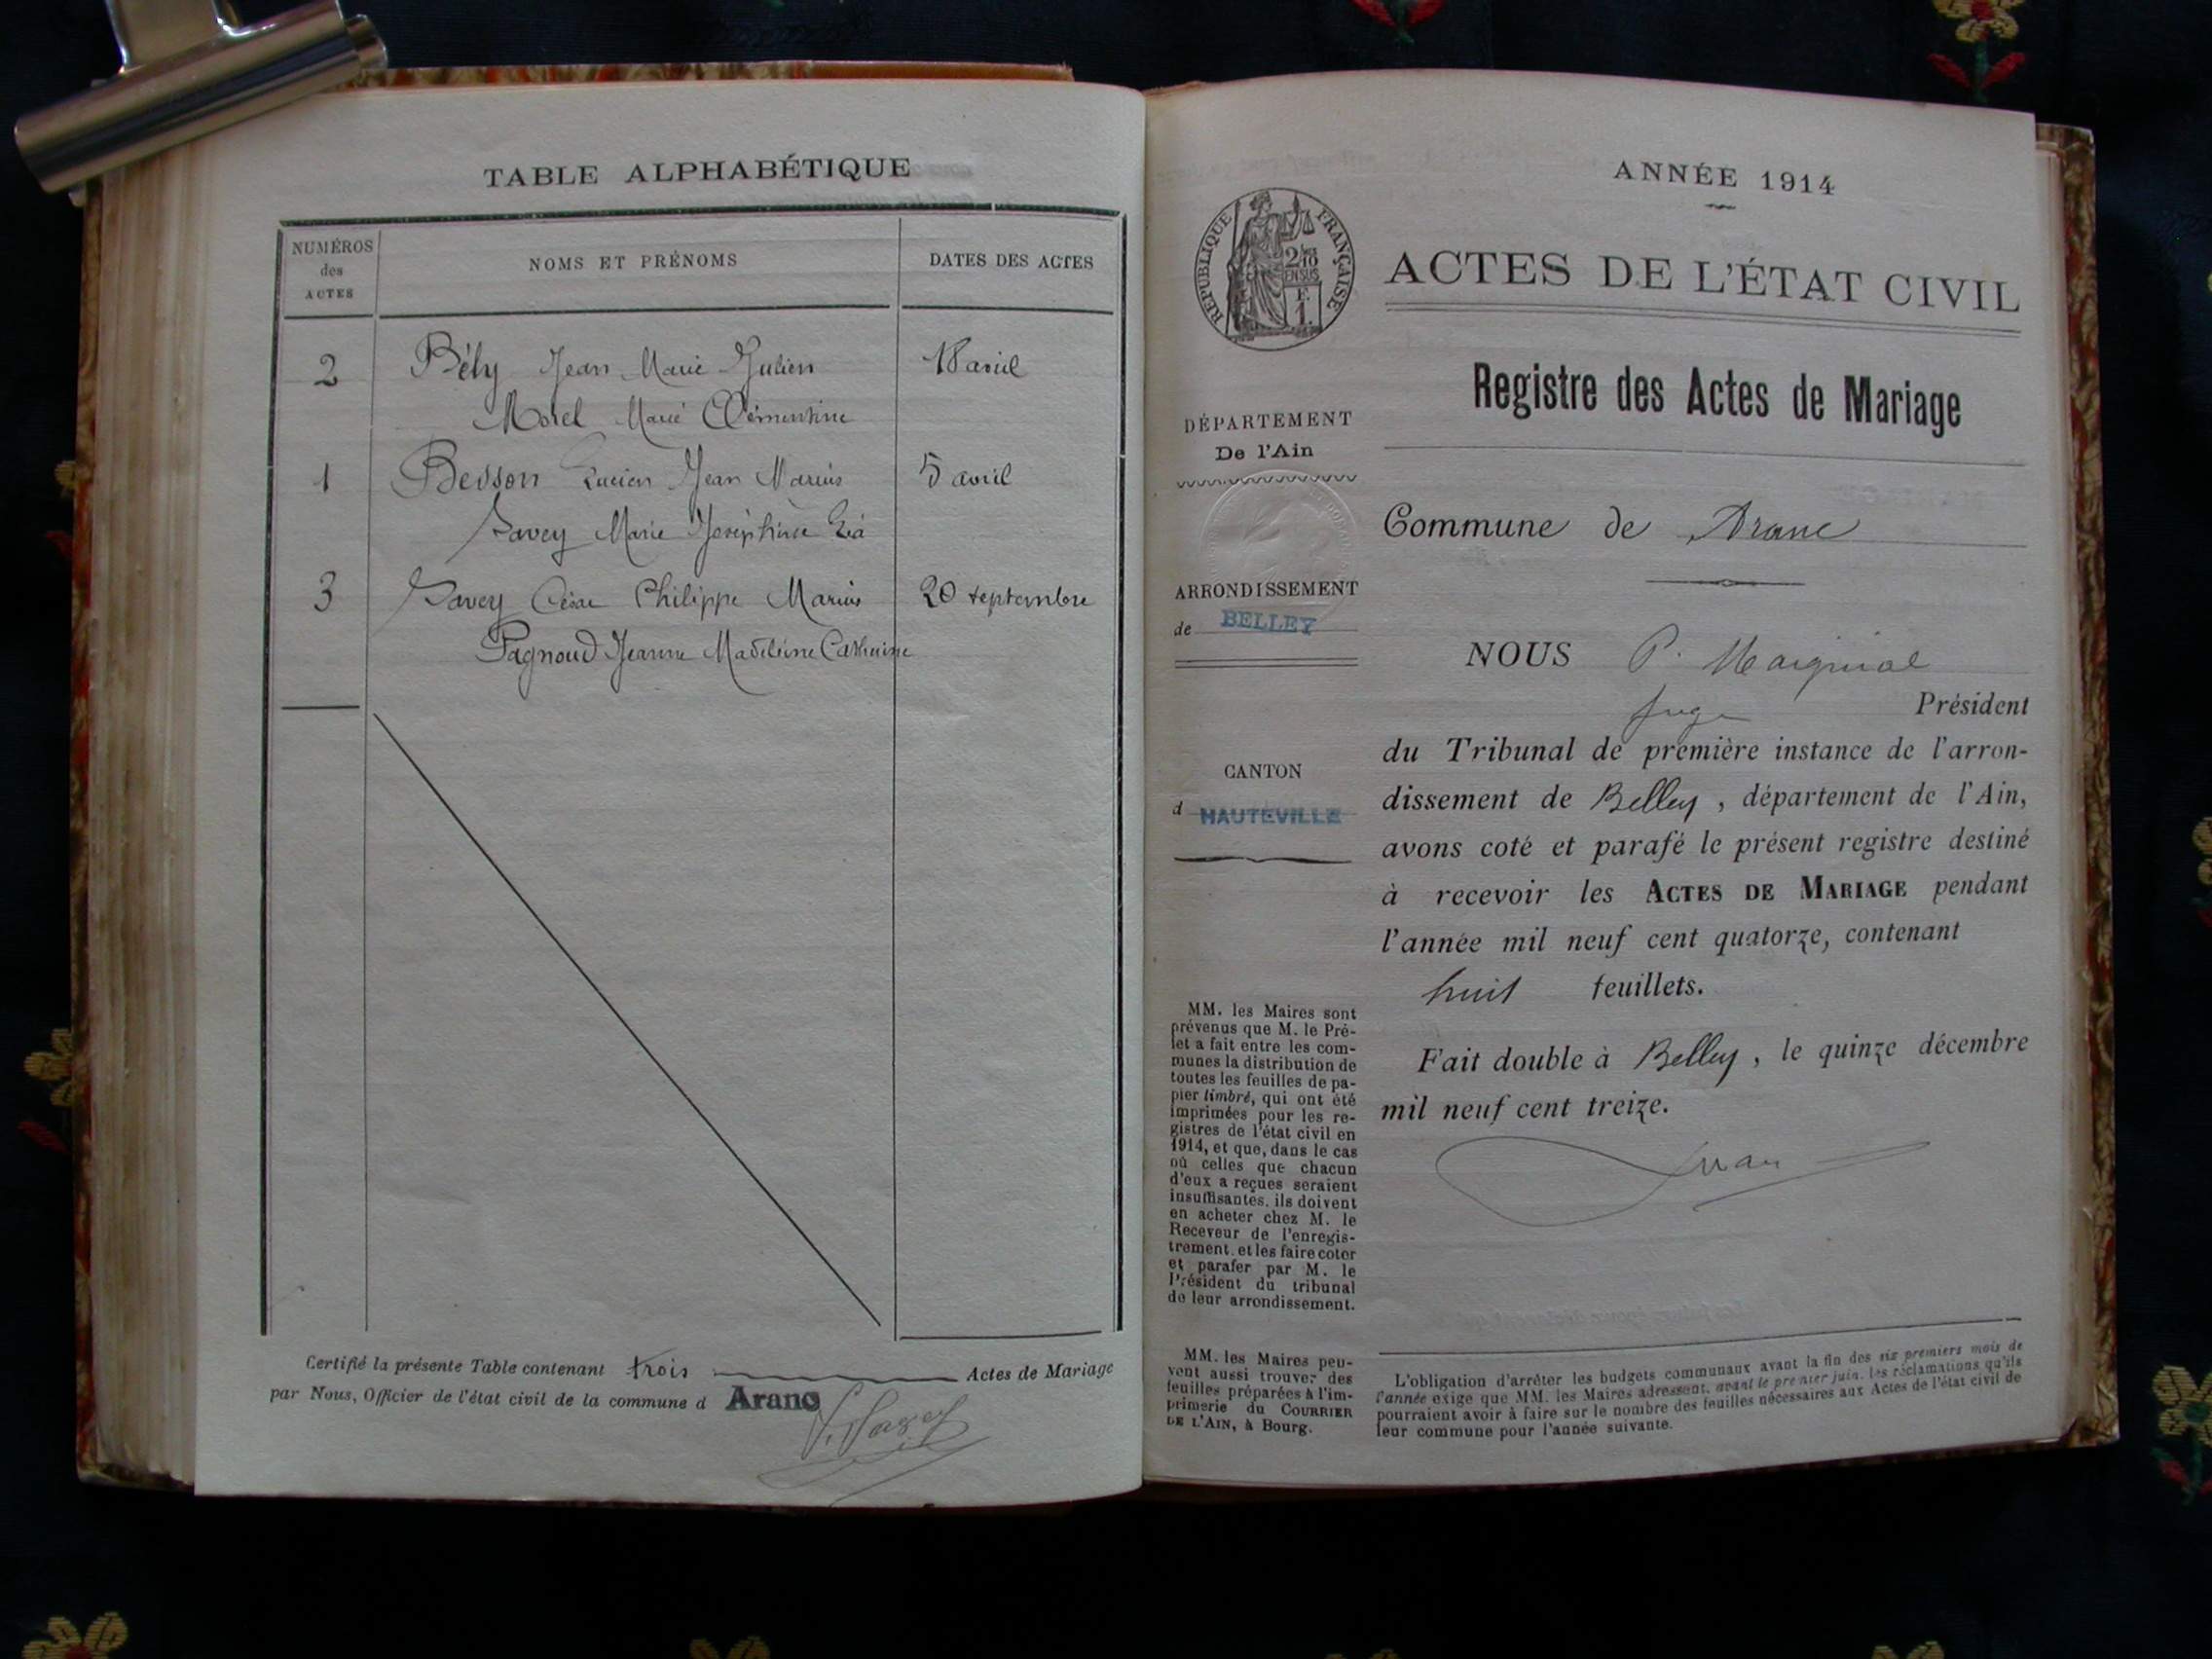 TABLE ALPHABÉTIQUE
NUMÉROS
des
ACTES
NOMS ET PRÉNOMS
DATES DES ACTES
2 Bély Jean Marie Julien 18 avril
Morel Marie Clémentine
1 Besson Lucien Jean Marius 5 avril
Savey Marie Joséphine Léa
3 Savey César Philippe Marius 20 septembre
Pagnoud Jeanne Madeleine Catherine
Certifié la présente Table contenant trois Actes de Mariage
par Nous, Officier de l'état civil de la commune d Aranc
ANNÉE 1914
RÉPUBLIQUE FRANÇAISE
2/10
EN SUS
F.
1.
ACTES DE L'ÉTAT CIVIL
Registre des Actes de Mariage
DÉPARTEMENT
De l'Ain
Commune de Aranc
ARRONDISSEMENT
de BELLEY
CANTON
d HAUTEVILLE
NOUS P.
juge Président
du Tribunal de première instance de l'arron-
dissement de Belley, département de l'Ain,
avons coté et parafé le présent registre destiné
à recevoir les ACTES DE MARIAGE pendant
l'année mil neuf cent quatorze, contenant
huit feuillets.
Fait double à Belley, le quinze décembre
mil neuf cent treize.
MM. les Maires sont
prévenus que M. le Pré-
fet a fait entre les com-
munes la distribution de
toutes les feuilles de pa-
pier timbré, qui ont été
imprimées pour les re-
gistres de l'état civil en
1914, et que, dans le cas
où celles que chacun
d'eux a reçues seraient
insuffisantes, ils doivent
en acheter chez M. le
Receveur de l'enregis-
trement, et les faire coter
et parafer par M. le
Président du tribunal
de leur arrondissement.
MM. les Maires peu-
vent aussi trouver des
feuilles préparées à l'im-
primerie du COURRIER
DE L'AIN, à Bourg.
L'obligation d'arrêter les budgets communaux avant la fin des six premiers mois de
l'année exige que MM. les Maires adressent, avant le premier juin, les réclamations qu'ils
pourraient avoir à faire sur le nombre des feuilles nécessaires aux Actes de l'état civil de
leur commune pour l'année suivante.